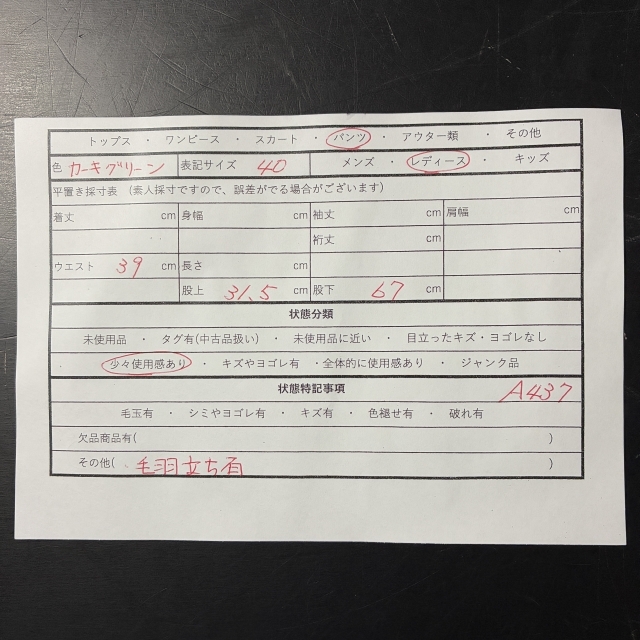 トップス ・ ワンピース ・ スカート ・ パンツ ・ アウター類 ・ その他
色 カーキグリーン 表記サイズ 40 メンズ ・ レディース ・ キッズ
平置き採寸表 (素人採寸ですので、誤差がでる場合がございます)
着丈 cm 身幅 cm 袖丈 cm 肩幅 cm
裄丈 cm
ウエスト 39 cm 長さ cm
股上 31.5 cm 股下 67 cm
状態分類
未使用品 ・ タグ有(中古品扱い) ・ 未使用品に近い ・ 目立ったキズ・ヨゴレなし
少々使用感あり ・ キズやヨゴレ有 ・全体的に使用感あり ・ ジャンク品
状態特記事項 A437
毛玉有 ・ シミやヨゴレ有 ・ キズ有 ・ 色褪せ有 ・ 破れ有
欠品商品有( )
その他( 毛羽立ち有 )